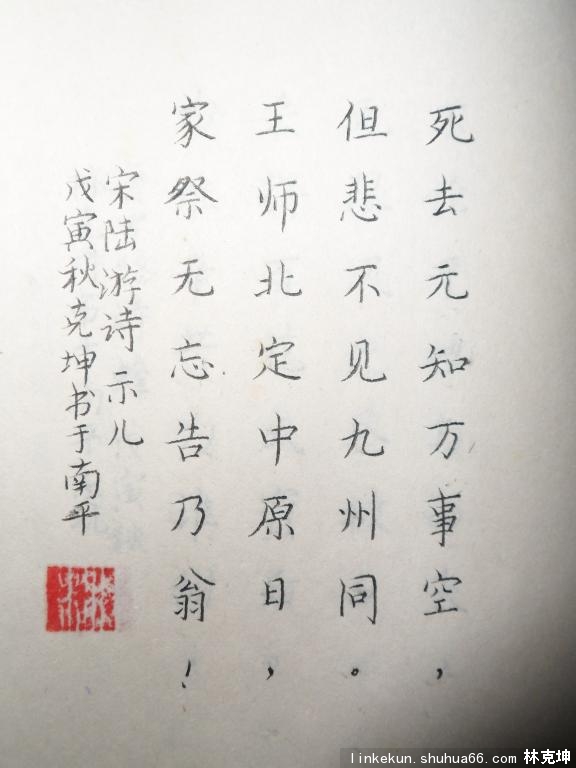 死去元知万事空，
但悲不见九州同。
王师北定中原日，
家祭无忘告乃翁！
宋陆游诗示儿
戊寅秋克坤书于南平
linkekun.shuhua66.com 林克坤